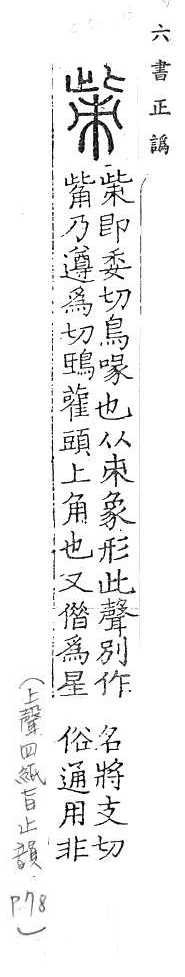 六書正譌
㭰
㭰即委切鳥喙也从朿象形此聲別作
觜乃遵爲切鴟雚頭上角也又借爲星
名將支切
俗通用非
(上聲四紙旨止韻. P.78)